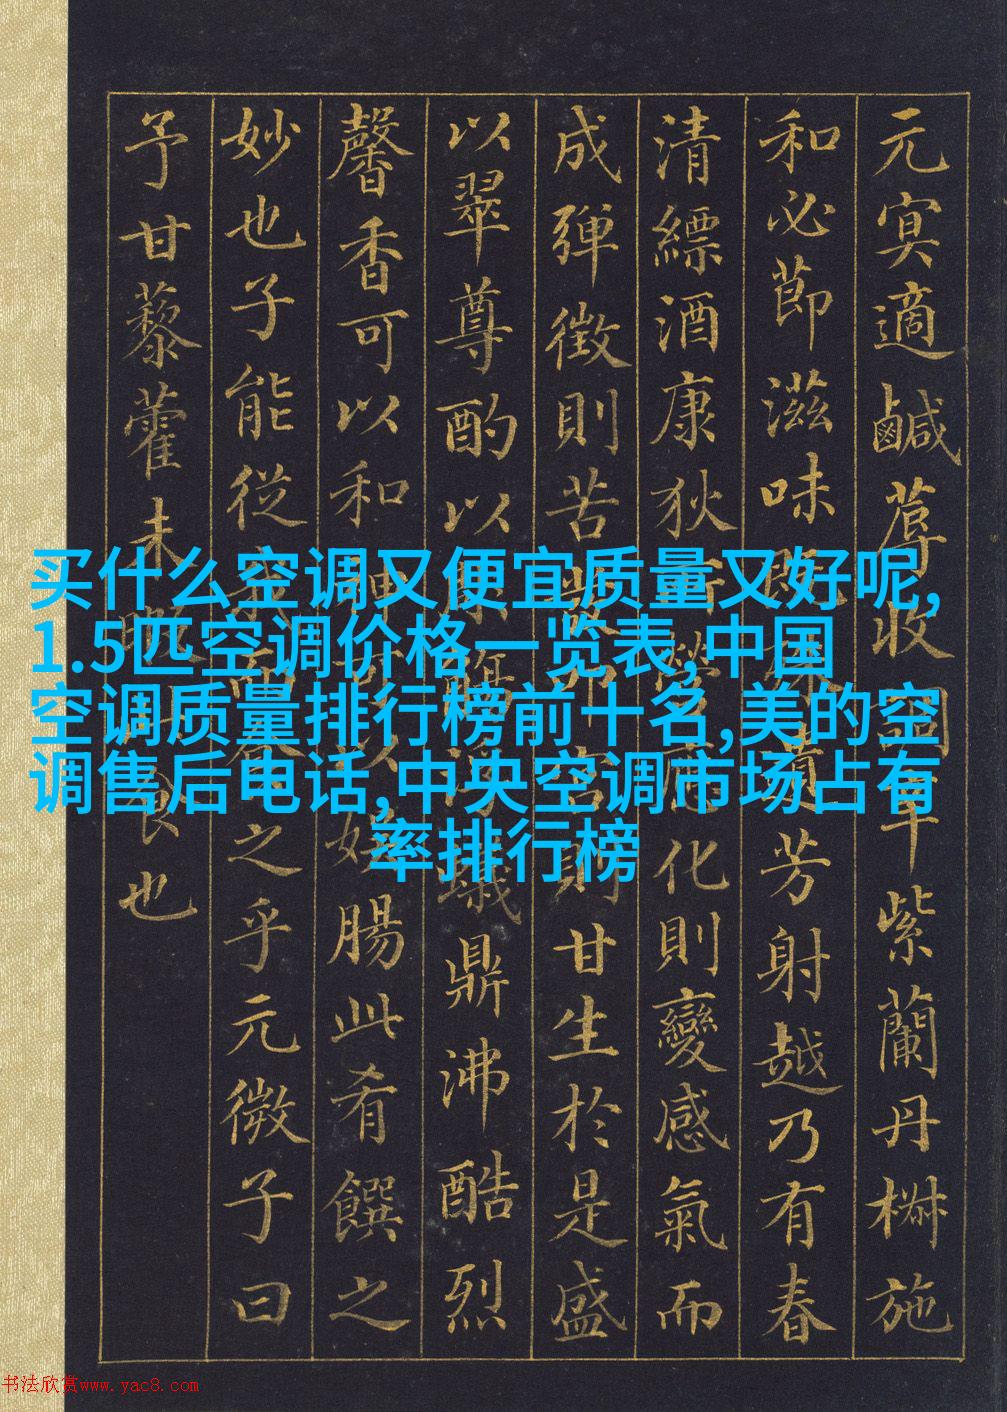 元冥適鹹蓐收調辛紫蘭丹椒施
和必節滋味既殊遺芳射越乃有春
清縹酒康狄所營應化則變感氣而
成彈徵則苦發叩宮則甘生於是盛
以翠尊酌以雕觴浮蟻鼎沸酷烈
馨香可以和神可以娛腸此肴饌之
妙也子能從我而食之乎元微子曰
予甘藜藿未暇此食也
买什么空调又便宜质量又好呢,
1.5匹空调价格一览表,中国
空调质量排行榜前十名,美的空
调售后电话,中央空调市场占有
率排行榜
书法欣赏www.yac8.com